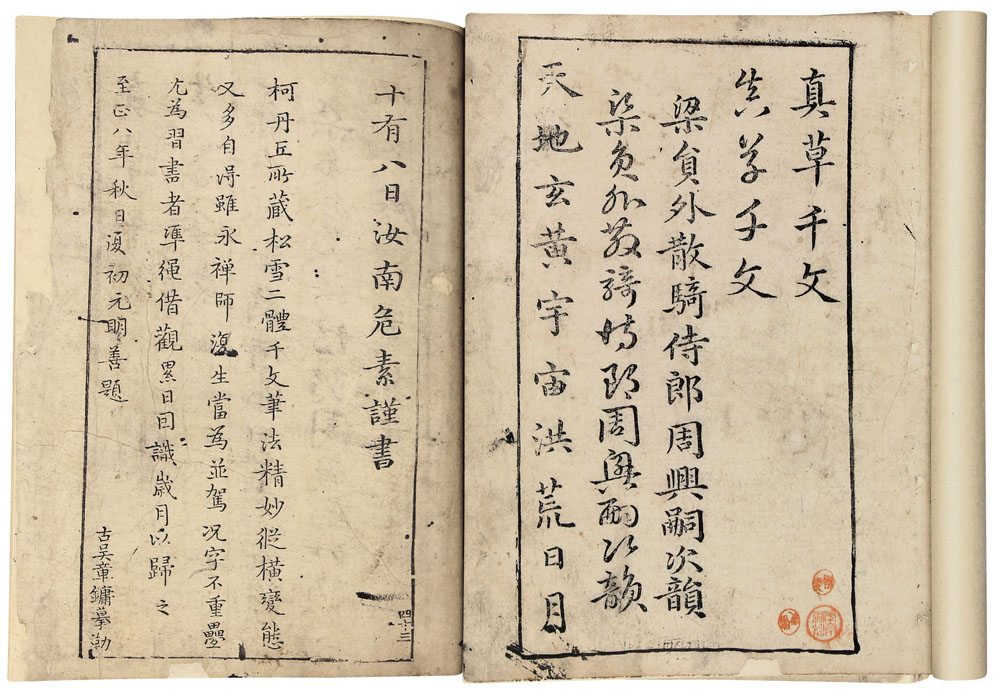 真草千文
真草千文
梁貟外散騎侍郎周興嗣次韻
梁貟外散騎侍郎周興嗣次韻
天地玄黄宇宙洪荒日月
十有八日汝南危素謹書
柯丹丘所蔵松雪二體千文筆法精妙從橫變態
又多自得雖永禅師復生當為並駕况字不重疊
尤為習書者準繩借觀累日囙識歲月以歸之
至正八年秋日復初元明善題
古吴章鏞摹勒
四十三